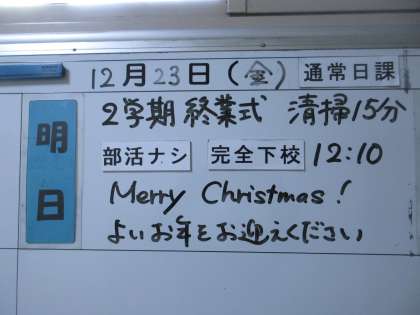 12月23日(金) 通常日課
明日
2学期 終業式 清掃15分
部活ナシ 完全下校 12:10
Merry Christmas!
よいお年をお迎えください